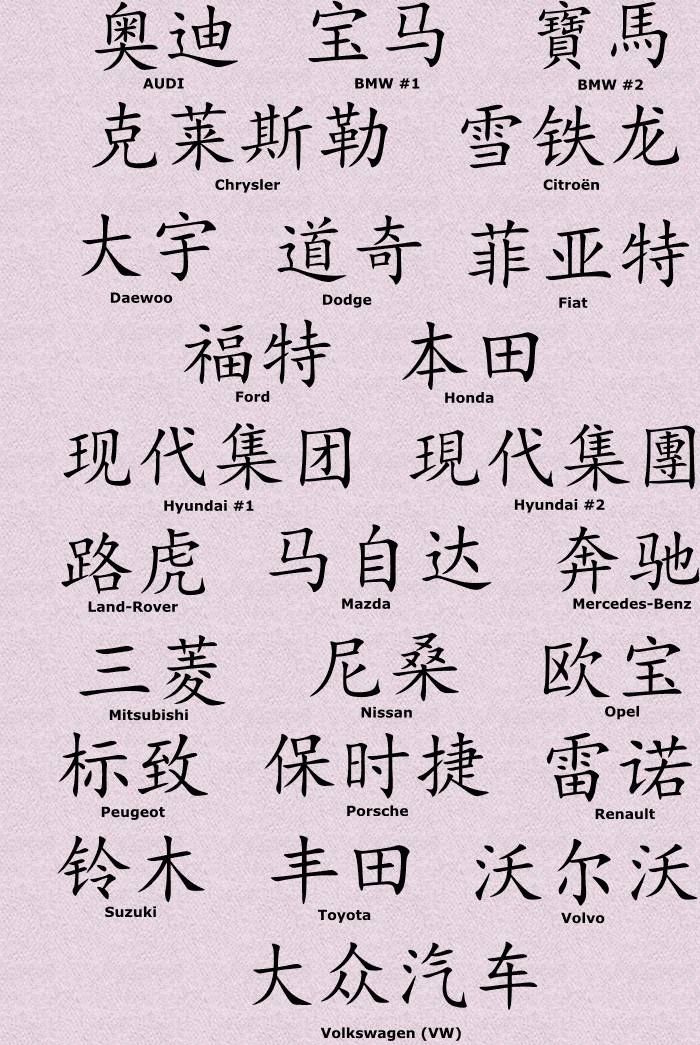 奥迪 宝马 寶馬
AUDI BMW #1 BMW #2
克莱斯勒 雪铁龙
Chrysler Citroën
大宇 道奇 菲亚特
Daewoo Dodge Fiat
福特 本田
Ford Honda
现代集团 現代集團
Hyundai #1 Hyundai #2
路虎 马自达 奔驰
Land-Rover Mazda Mercedes-Benz
三菱 尼桑 欧宝
Mitsubishi Nissan Opel
标致 保时捷 雷诺
Peugeot Porsche Renault
铃木 丰田 沃尔沃
Suzuki Toyota Volvo
大众汽车
Volkswagen (VW)